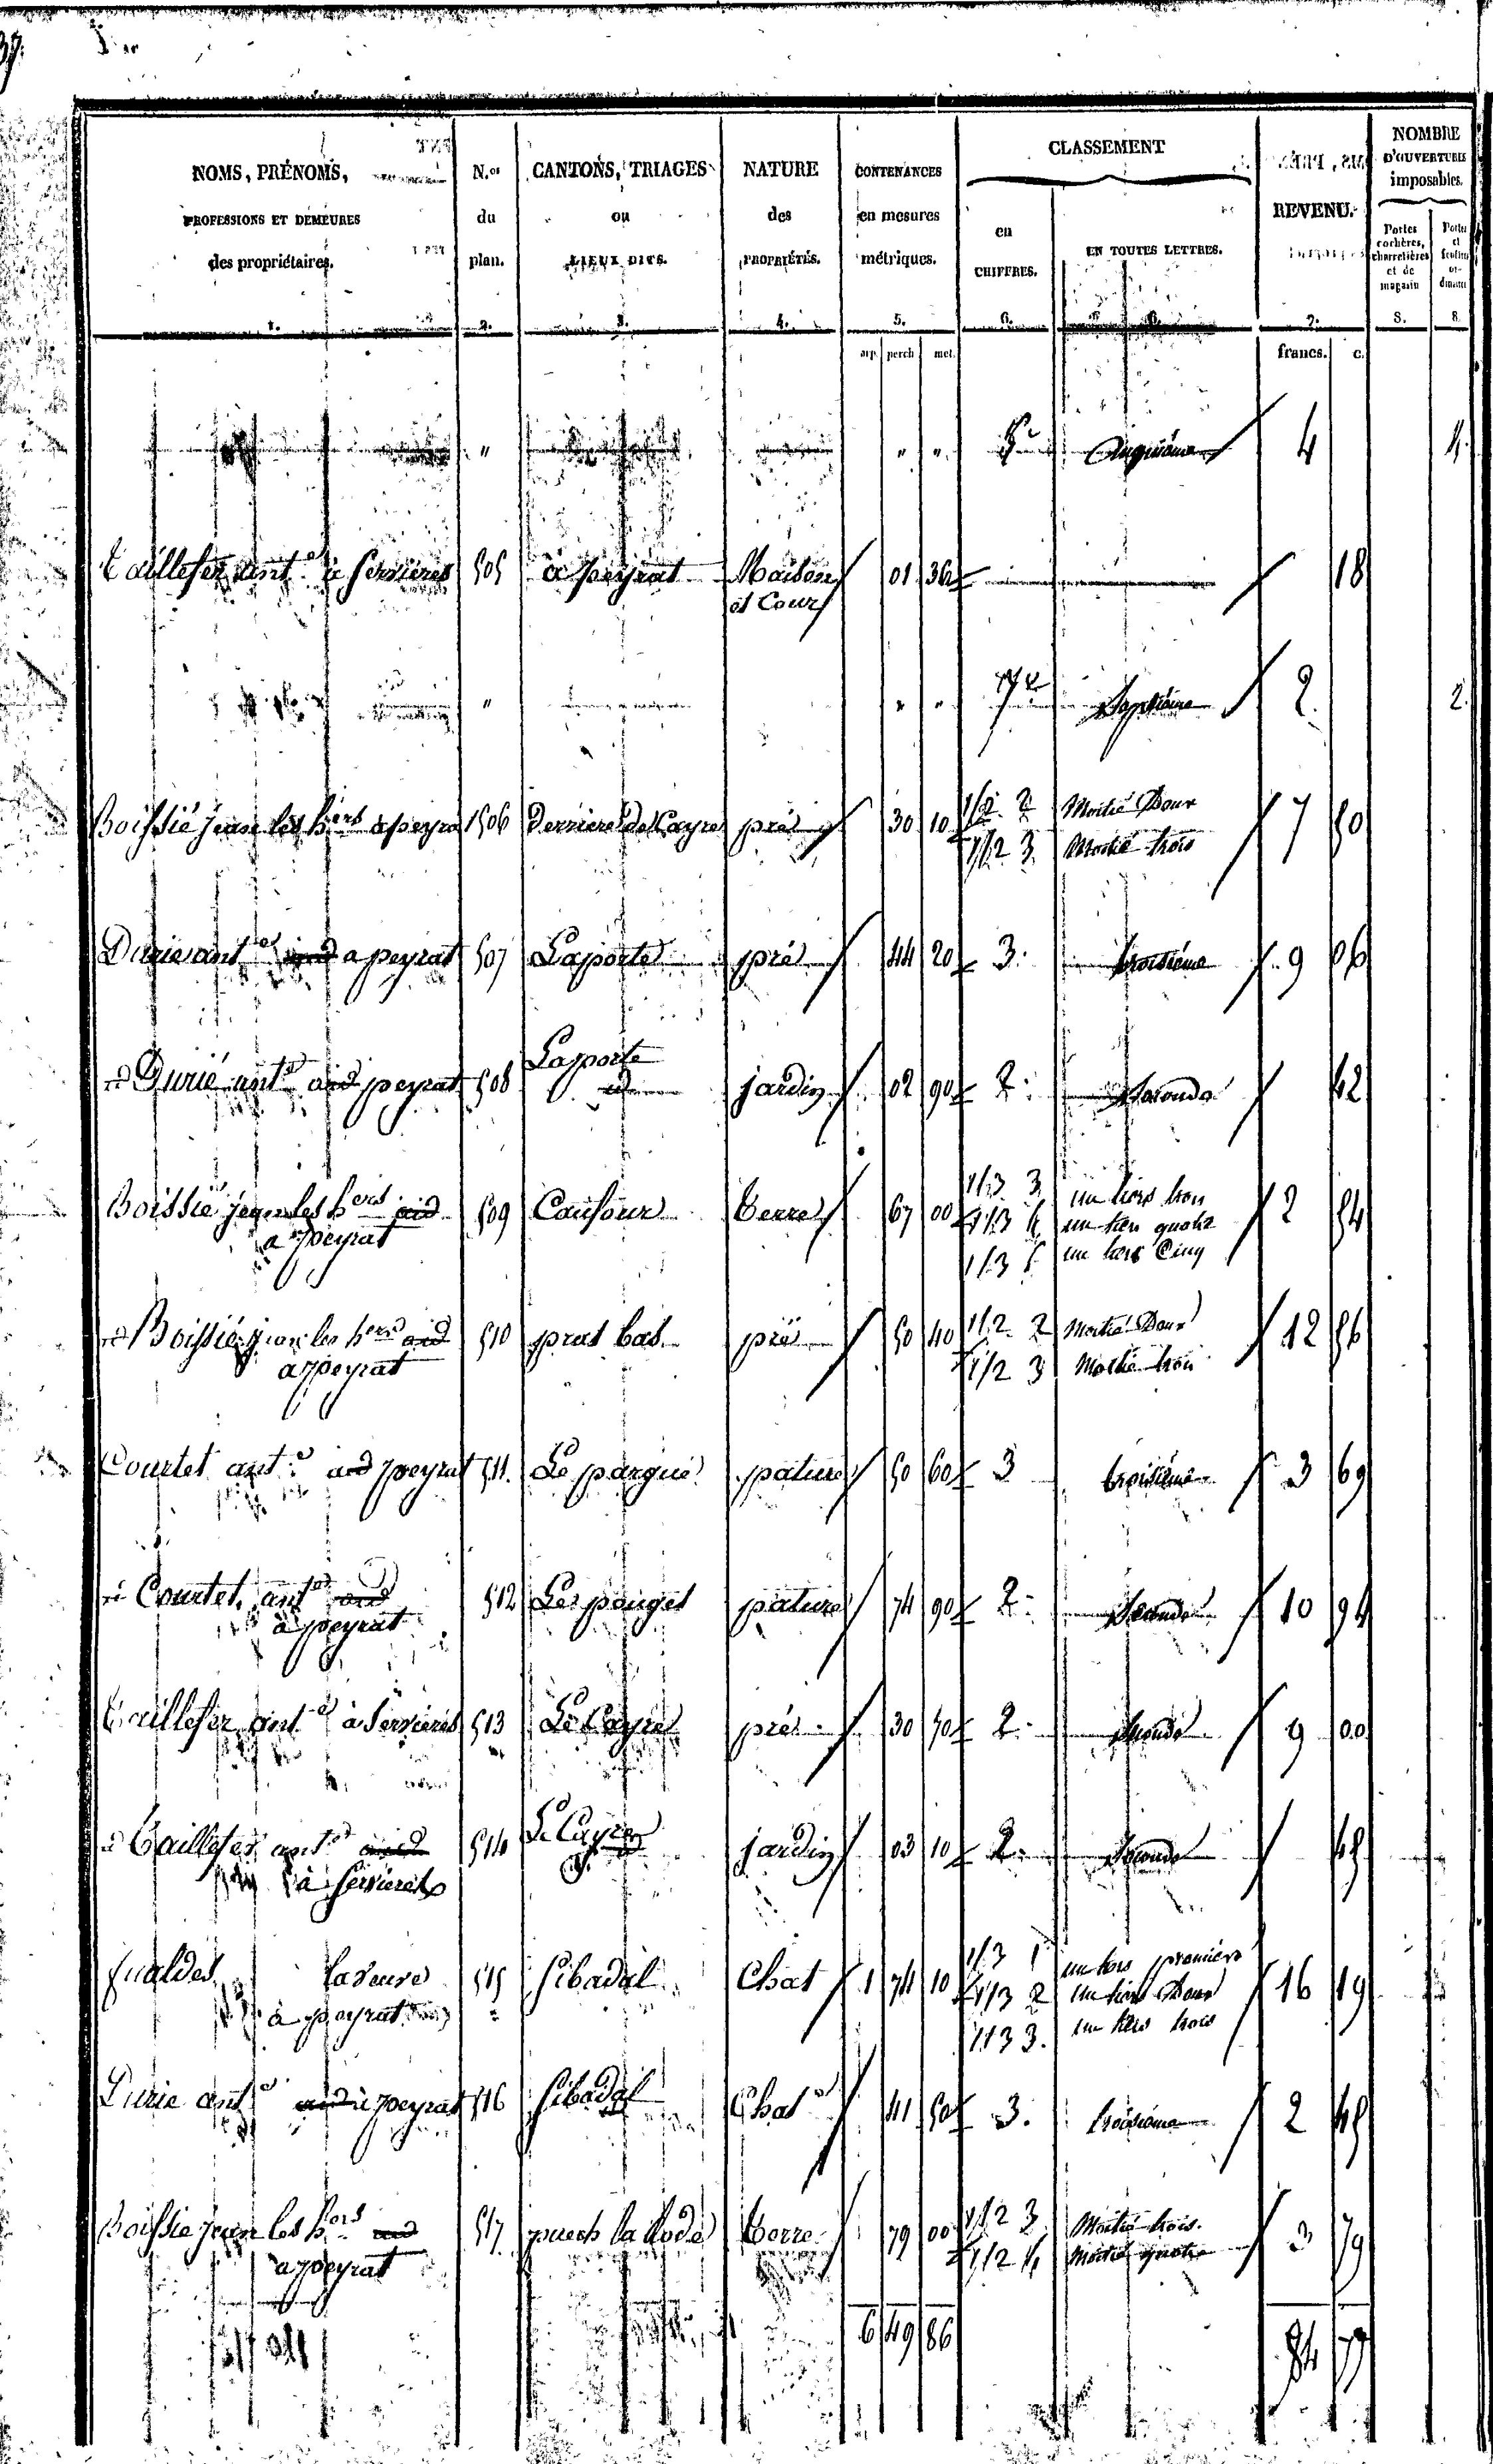 NOMS, PRÉNOMS,
PROFESSIONS ET DEMEURES
des propriétaires.
1.
N.os
du
plan.
2.
CANTONS, TRIAGES
ou
LIEUX DITS.
3.
NATURE
des
PROPRIÉTÉS.
4.
CONTENANCES
en mesures
métriques.
5.
arp. perch. met.
CLASSEMENT
en
CHIFFRES.
6.
EN TOUTES LETTRES.
REVENU.
7.
francs. c.
NOMBRE
D'OUVERTURES
imposables.
Portes
cochères,
charretières
et de
magasin
8.
8.
" " " 5e Cinquième 4 4.
Taillefer ant.e à Servieres 505 à peyrat Maison 01 36 18
et Cour
" " " 7e Septième 2 2.
Boissié jean les hers a peyra 506 Derriere de Cayre pré 30 10 1/2 2 Moitié Deux 7 50
1/2 3. Moitié trois
Durie ant.e a peyrat 507 Laporte pré 44 20 3. troisième 9 06
Durié ant.e peyrat 508 Laporte id jardin 02 90 2. Seconde 42
Boissié jean les hers 509 Caufour terre 67 00 1/3 3 un tiers trois 2 54
a peyrat 1/3 4 un tiers quatre
1/3 5 un tiers Cinq
Boissié jean les hers 510 prat bas pré 50 40 1/2 2 Moitié Deux 12 56
a peyrat 1/2 3 Moitié trois
Courtet ant.e peyrat 511. Le pargué pature 50 60 3 troisième 3 69
Courtet ant.e 512 Les pouget pature 74 90 2. Seconde 10 94
à peyrat
Taillefer ant.e à Servieres 513 Le Cayre pré 30 70 2. Seconde 9 00
Taillefer ant.e 514 Le Cayre jardin 03 10 2. Seconde 45
à Servieres
fualdes laveuve 515 Sibadal Chat 1 74 10 1/3 1 un tiers premiere 16 19
à peyrat 1/3 2 un tiers Deux
1/3 3. un tiers trois
Durie ant.e à peyrat 516 Sibadal Chat 41 50 3. troisième 2 45
Boissie jean les hers 517 puech la Rode terre 79 00 1/2 3 Moitié trois. 3 79
a peyrat 1/2 4 Moitié quatre
6 49 86